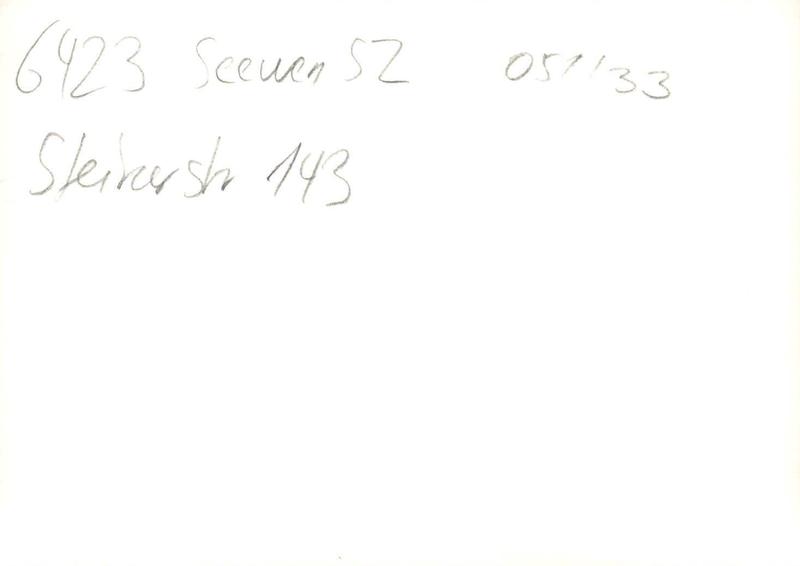 6423 Seewen SZ 051/33
Steinerstr 143